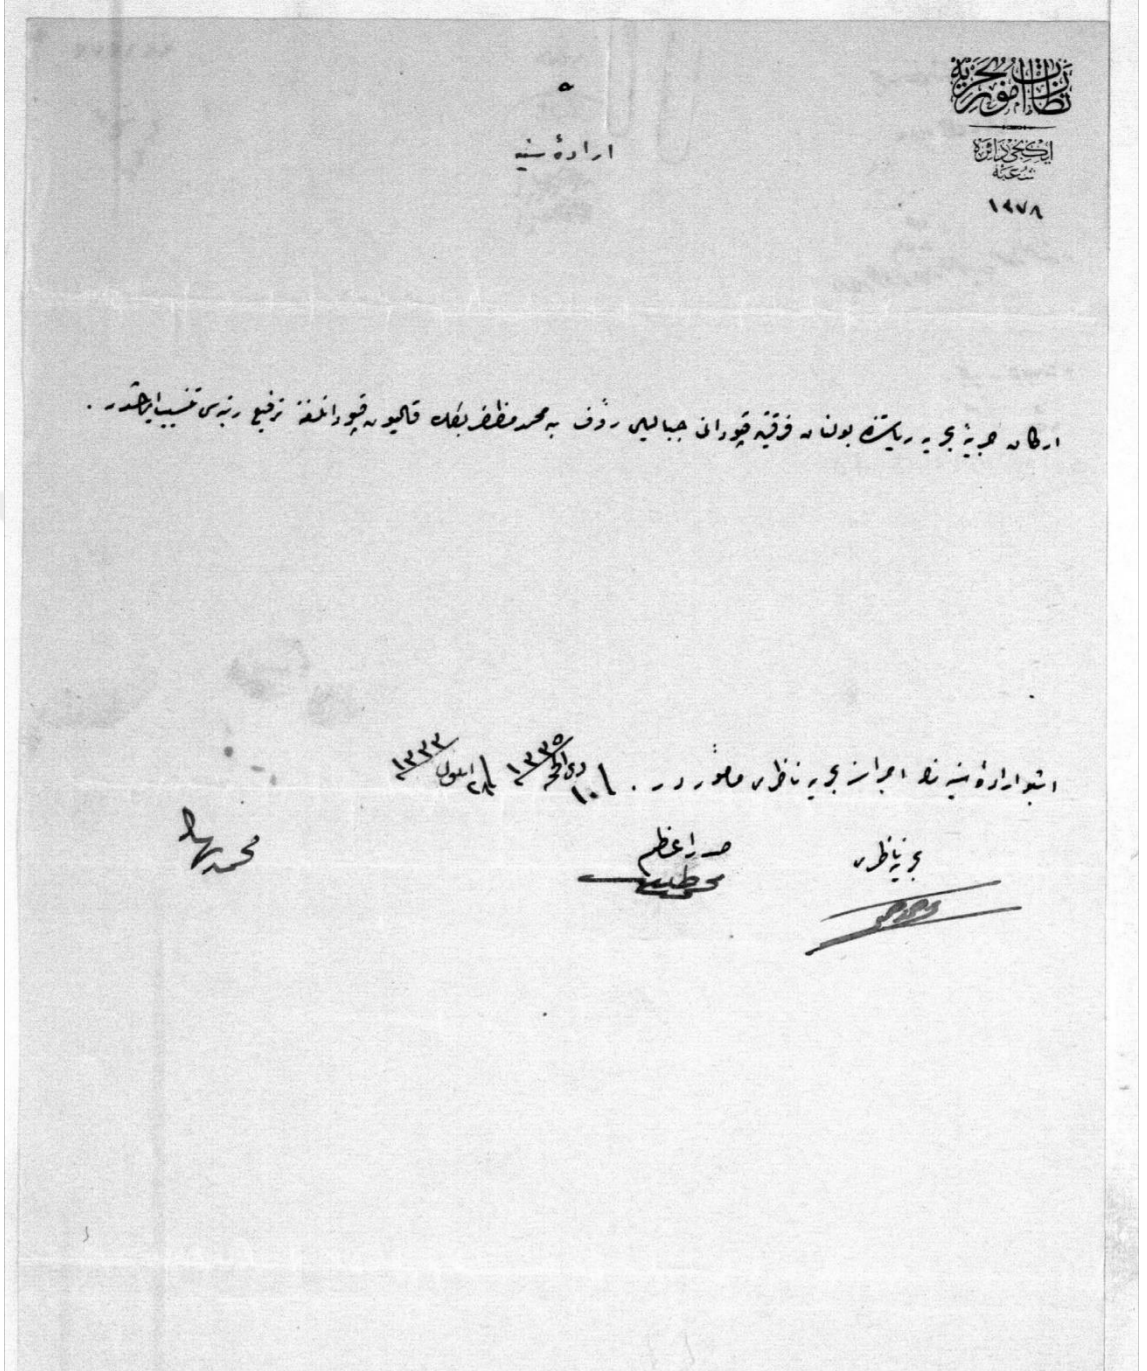 نظارت امور بحریه
ایكنجی دائره
شعبه
١٩٧٨
ارادۀ سنیه
اركان حربیۀ بحریه ریاستنده بولنان فرقتین قپودانی جبالیلی رؤف بك محمد مظفر بكك قالیون قپودانلغنه ترفیع رتبه‌سی تنسیب ایدلمشدر .
اشبو ارادۀ سنیه نك اجراسنه بحریه ناظری مأموردر . ١٠ ذی الحجه ١٣٣٥ ٢٨ ایلول ١٣٣٣
بحریه ناظری صدر اعظم
محمد طلعت